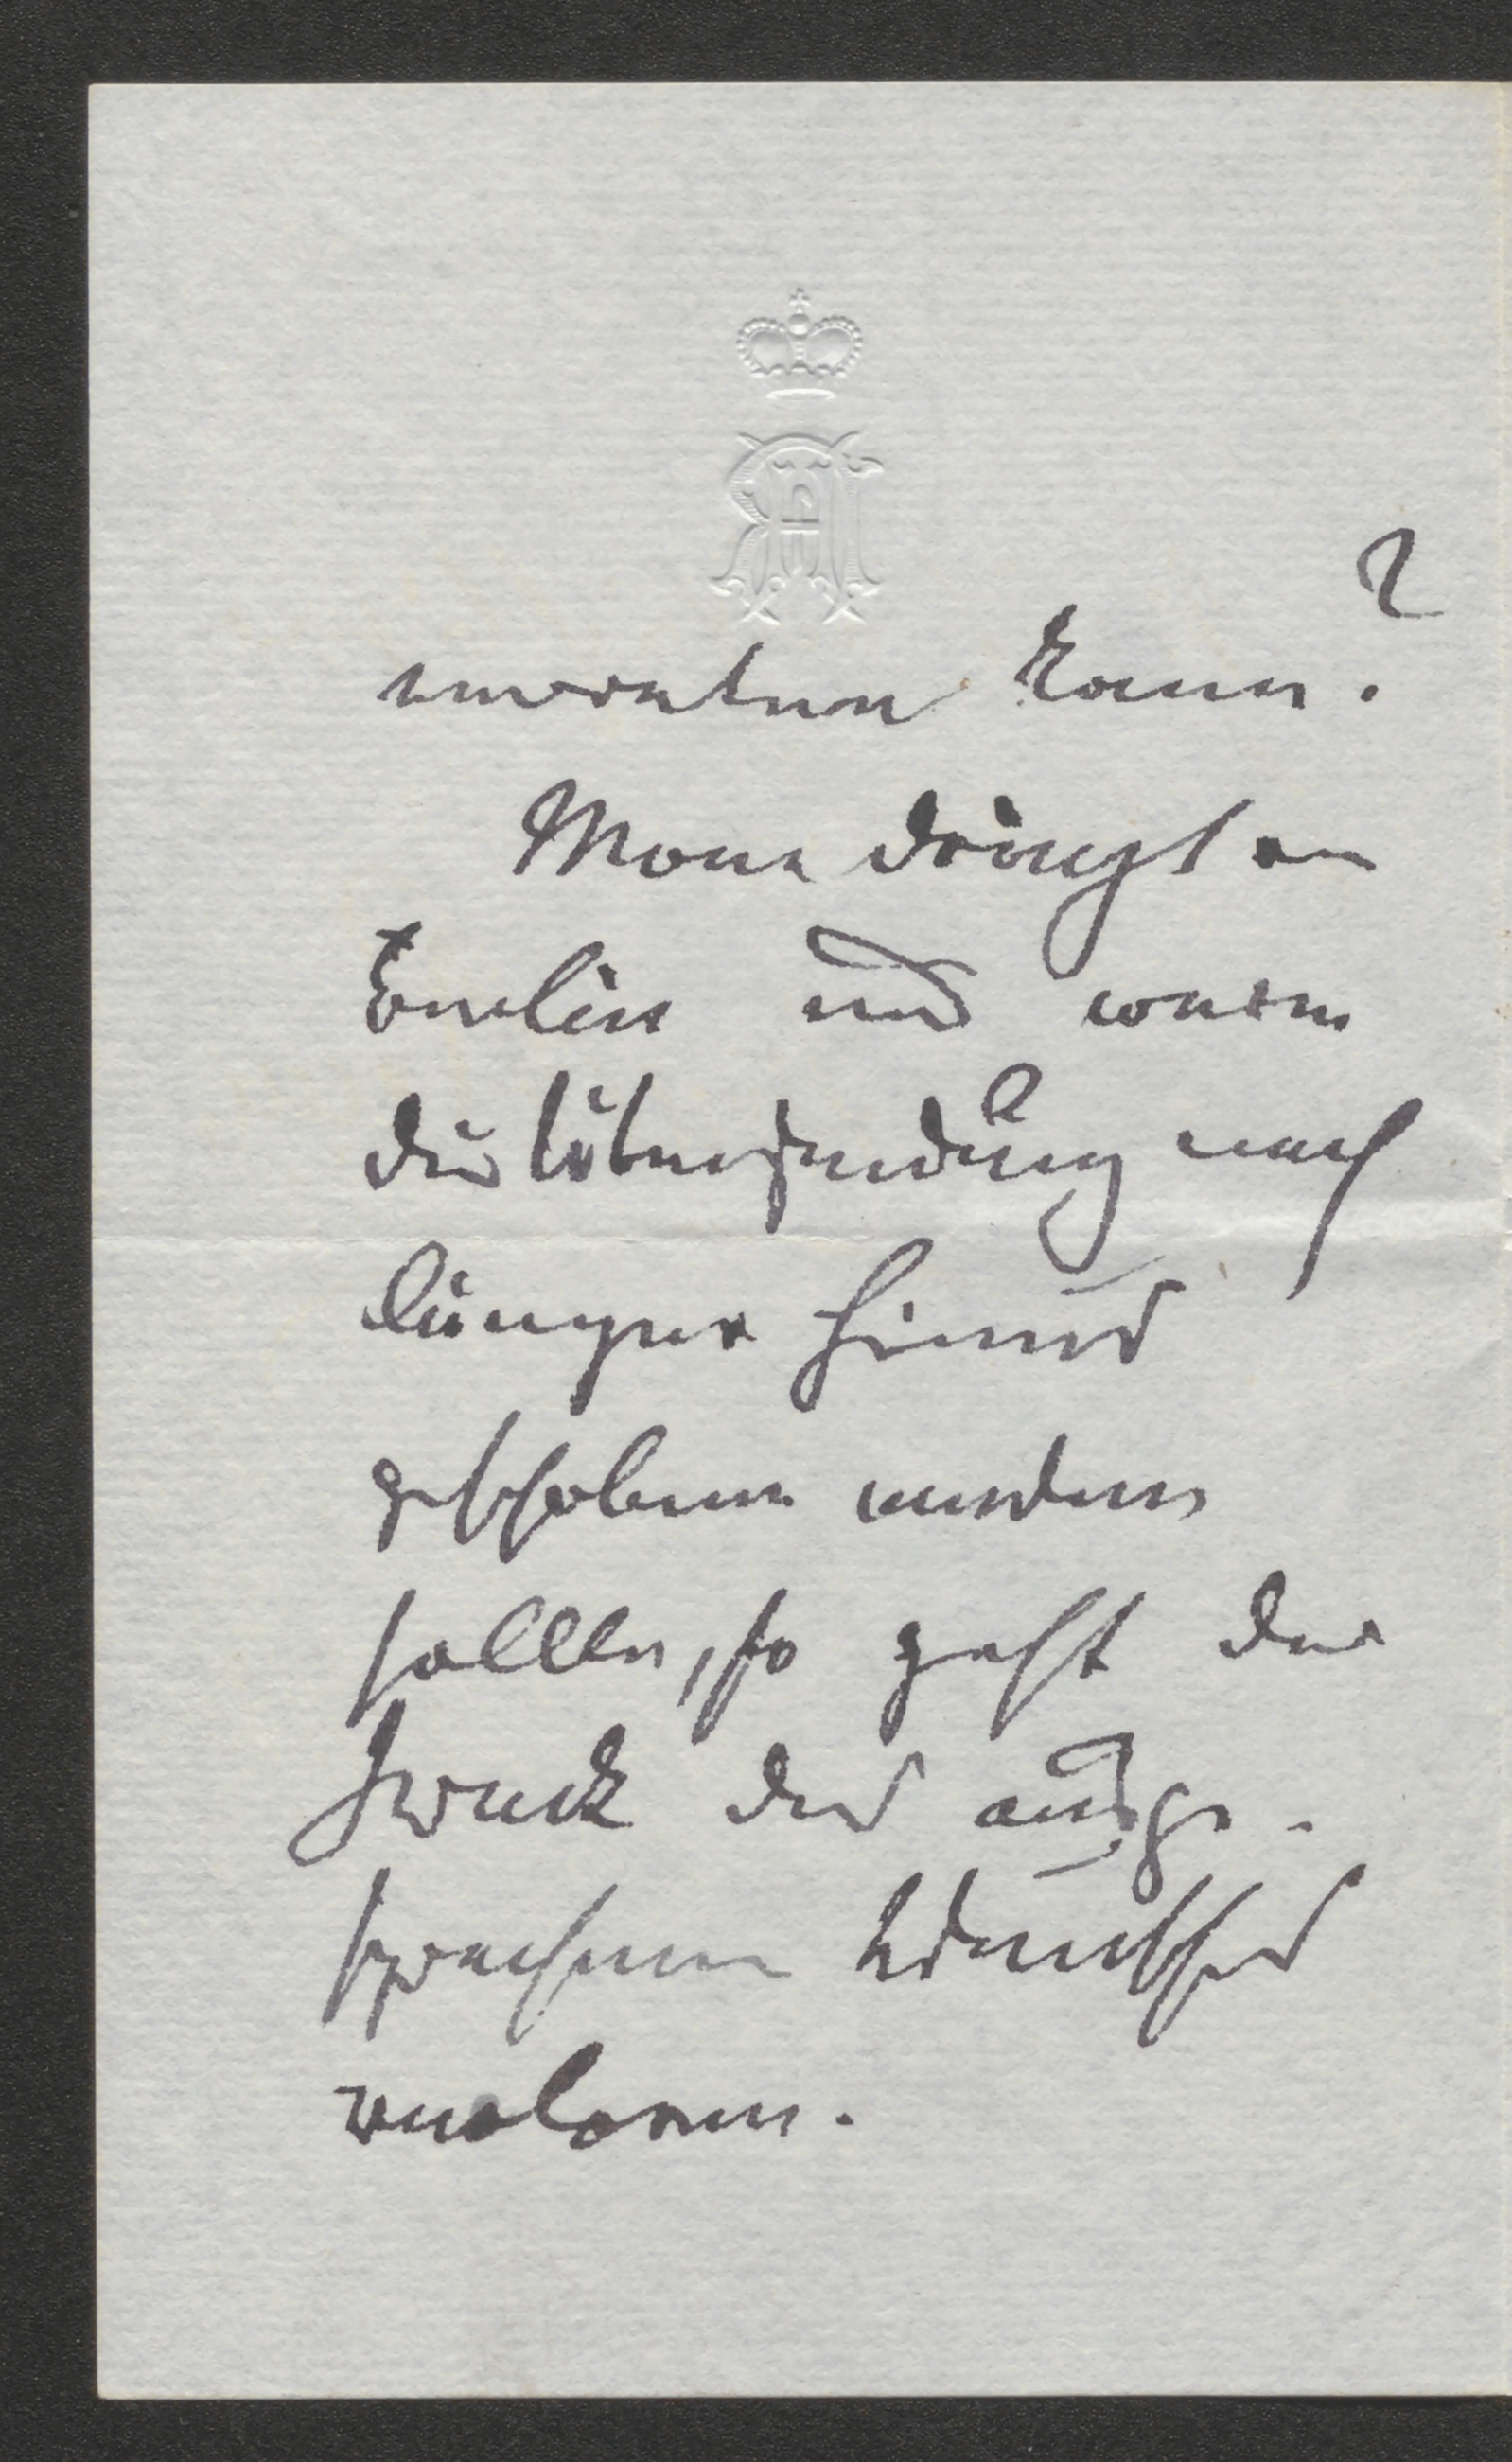 erwarten kann?
Man drängt in
Berlin und wenn
die Übersendung noch
länger hinaus
geschoben werden
sollte, so geht der
Zweck des ausge-
sprochenen Wunsches
verloren.